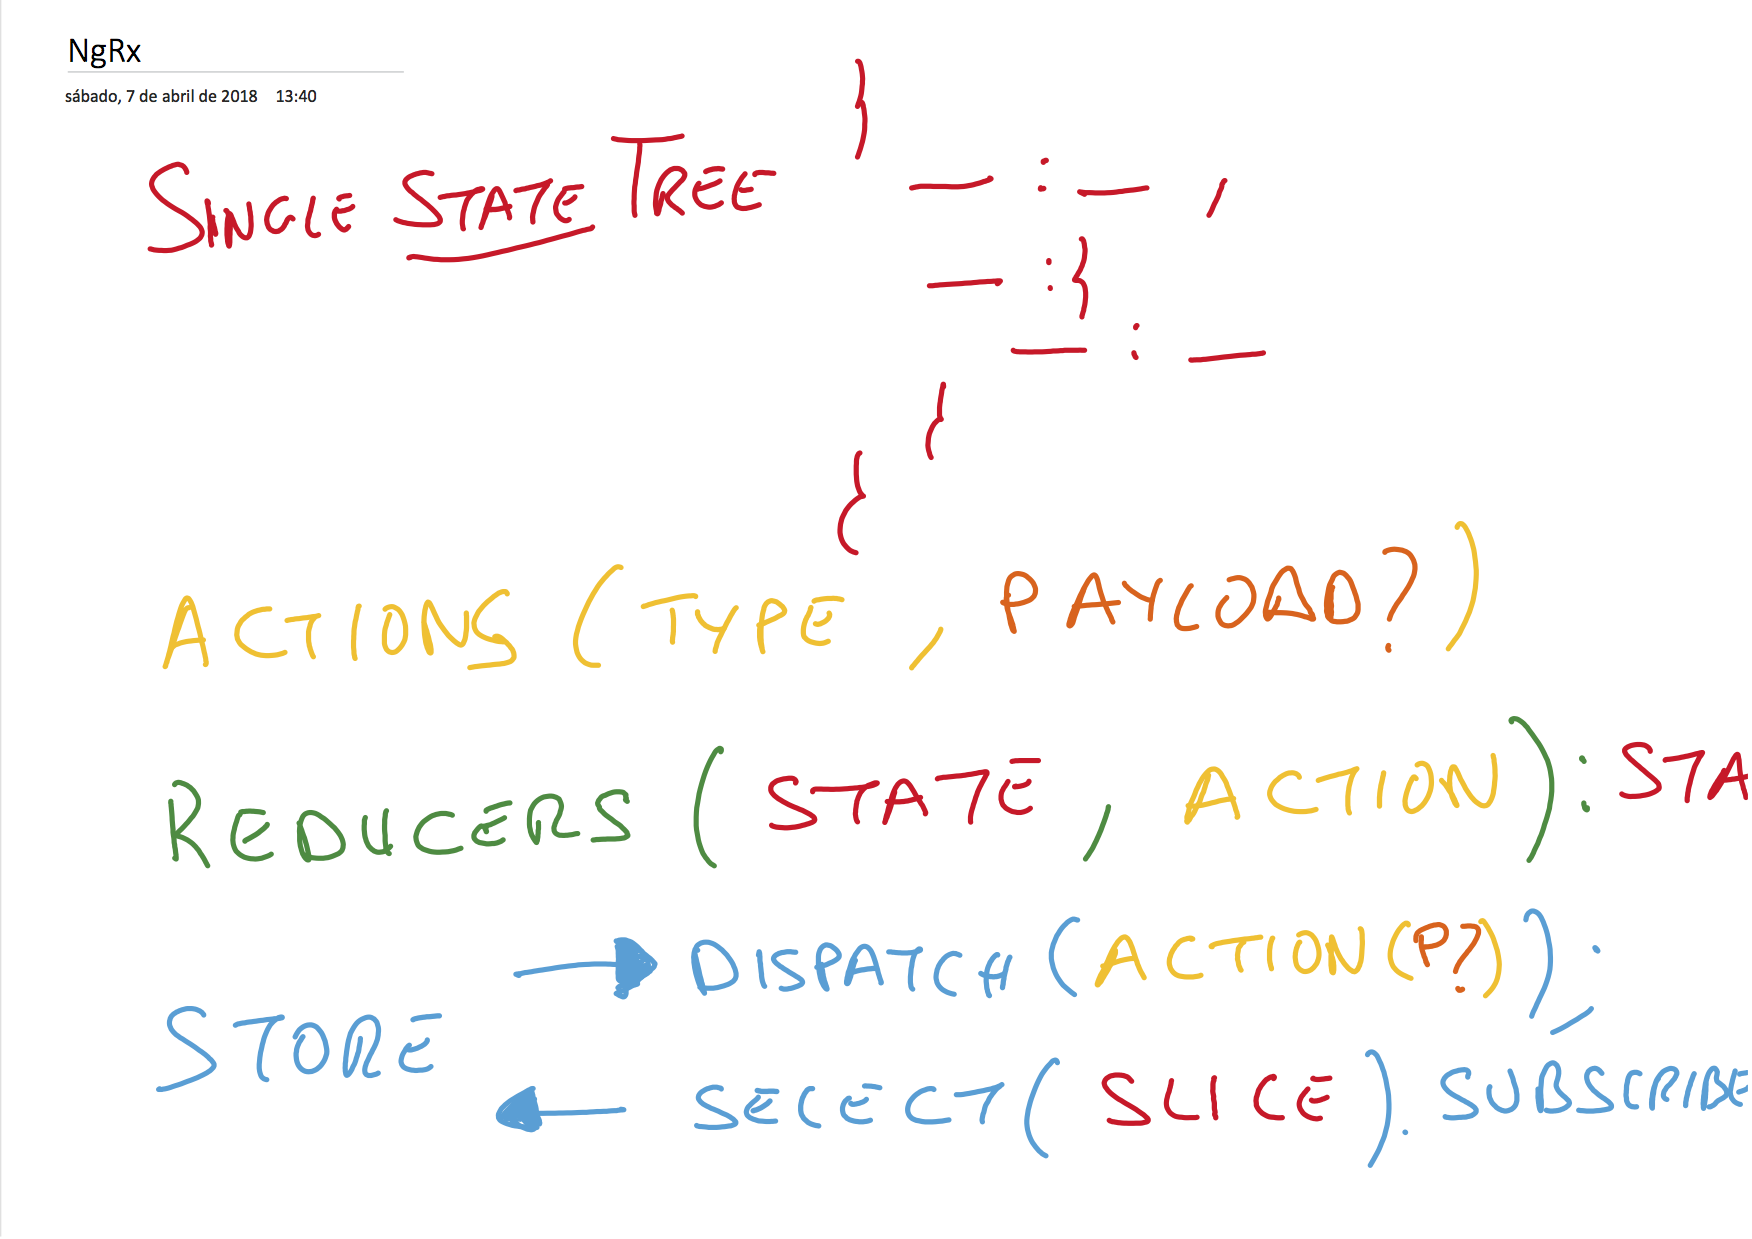 NgRx
sábado, 7 de abril de 2018 13:40
SINGLE STATE TREE
}
— : — ,
— : }
— : —
{
{
ACTIONS (TYPE, PAYLOAD?)
REDUCERS (STATE, ACTION): STA
STORE
DISPATCH (ACTION(P?));
SELECT(SLICE). SUBSCRIBE